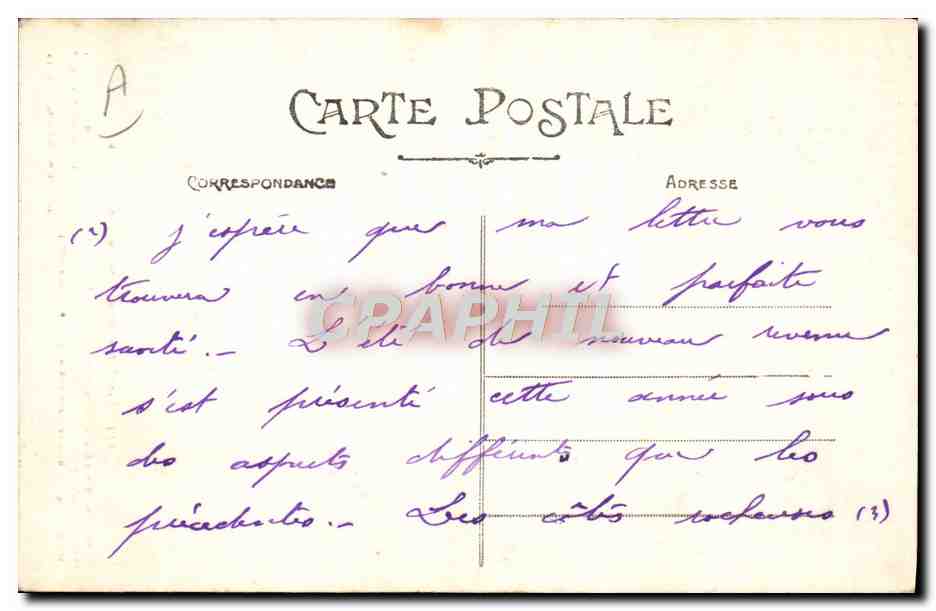 A
CARTE POSTALE
CORRESPONDANCE
ADRESSE
(2) j'espère que ma lettre vous
trouvera en bonne et parfaite
santé. — L'été de nouveau revenu
s'est présenté cette année sous
des aspects différents que les
précédentes. — Les côtés rocheuses (3)
CPAPHIL